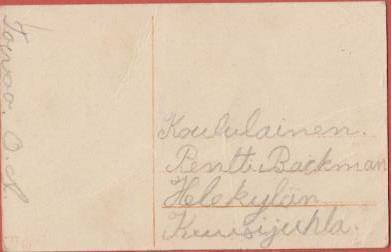 Toivoo. O. A.
Koululainen.
Pentti Backman
Helekylän
Kuusijuhla.